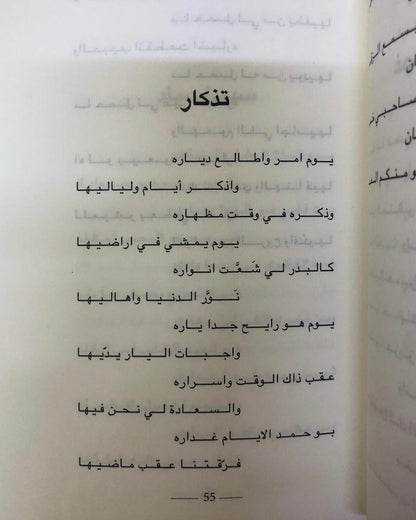 تذكار
يوم امر واطالع دياره
واذكر أيام ولياليها
وذكره في وقت مظهاره
يوم يمشي في اراضيها
كالبدر لي شَعَّت انواره
نَوَّر الدنيا واهاليها
يوم هو رايح جدا ياره
واجبات اليار يدّيها
عقب ذاك الوقت واسراره
والسعادة لي نحن فيها
بو حمد الايام غداره
فرّقتنا عقب ماضيها
55